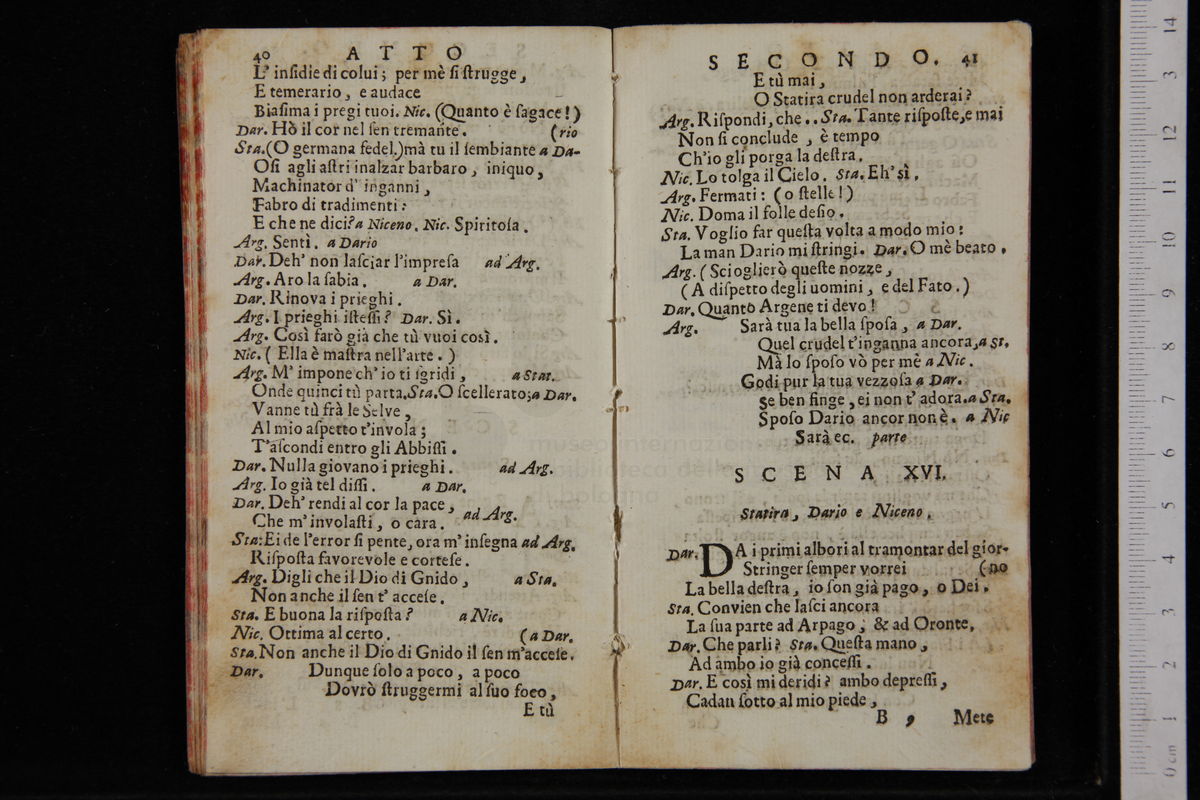 40 ATTO
L' insidie di colui; per mè si strugge,
E temerario, e audace
Biasima i pregi tuoi. Nic. (Quanto è sagace!)
Dar. Hò il cor nel sen tremante. (rio
Sta.(O germana fedel.)mà tu il sembiante a Da-
Osi agli astri inalzar barbaro, iniquo,
Machinator d' inganni,
Fabro di tradimenti:
E che ne dici? a Niceno. Nic. Spiritosa.
Arg. Senti. a Dario
Dar. Deh' non lasciar l'impresa ad Arg.
Arg. Aro la sabia. a Dar.
Dar. Rinova i prieghi.
Arg. I prieghi istessi? Dar. Sì.
Arg. Così farò già che tù vuoi così.
Nic. ( Ella è mastra nell'arte. )
Arg. M' impone ch' io ti sgridi, a Stat.
Onde quinci tù parta. Sta. O scellerato; a Dar.
Vanne tù frà le Selve,
Al mio aspetto t'invola;
T'ascondi entro gli Abbissi.
Dar. Nulla giovano i prieghi. ad Arg.
Arg. Io già tel dissi. a Dar.
Dar. Deh' rendi al cor la pace,
Che m' involasti, o cara. ad Arg.
Sta: Ei de l'error si pente, ora m' insegna ad Arg.
Risposta favorevole e cortese.
Arg. Digli che il Dio di Gnido, a Sta.
Non anche il sen t' accese.
Sta. E buona la risposta? a Nic.
Nic. Ottima al certo. (a Dar.
Sta. Non anche il Dio di Gnido il sen m'accese.
Dar. Dunque solo a poco, a poco
Dovrò struggermi al suo foco,
E tù
SECONDO. 41
E tù mai,
O Statira crudel non arderai?
Arg. Rispondi, che .. Sta. Tante risposte, e mai
Non si conclude, è tempo
Ch'io gli porga la destra.
Nic. Lo tolga il Cielo. Sta. Eh' sì.
Arg. Fermati: (o stelle!)
Nic. Doma il folle desio.
Sta. Voglio far questa volta a modo mio:
La man Dario mi stringi. Dar. O mè beato.
Arg. (Scioglierò queste nozze,
(A dispetto degli uomini, e del Fato.)
Dar. Quanto Argene ti devo!
Arg. Sarà tua la bella sposa, a Dar.
Quel crudel t'inganna ancora, a St.
Mà lo sposo vò per mè a Nic.
Godi pur la tua vezzosa a Dar.
Se ben finge, ei non t' adora. a Sta.
Sposo Dario ancor non è. a Nic
Sarà ec. parte
SCENA XVI.
Statira, Dario e Niceno.
Dar. DA i primi albori al tramontar del gior-
Stringer semper vorrei (no
La bella destra, io son già pago, o Dei.
Sta. Convien che lasci ancora
La sua parte ad Arpago, & ad Oronte,
Dar. Che parli? Sta. Questa mano,
Ad ambo io già concessi.
Dar. E così mi deridi? ambo depressi,
Cadan sotto al mio piede,
B 9 Mete